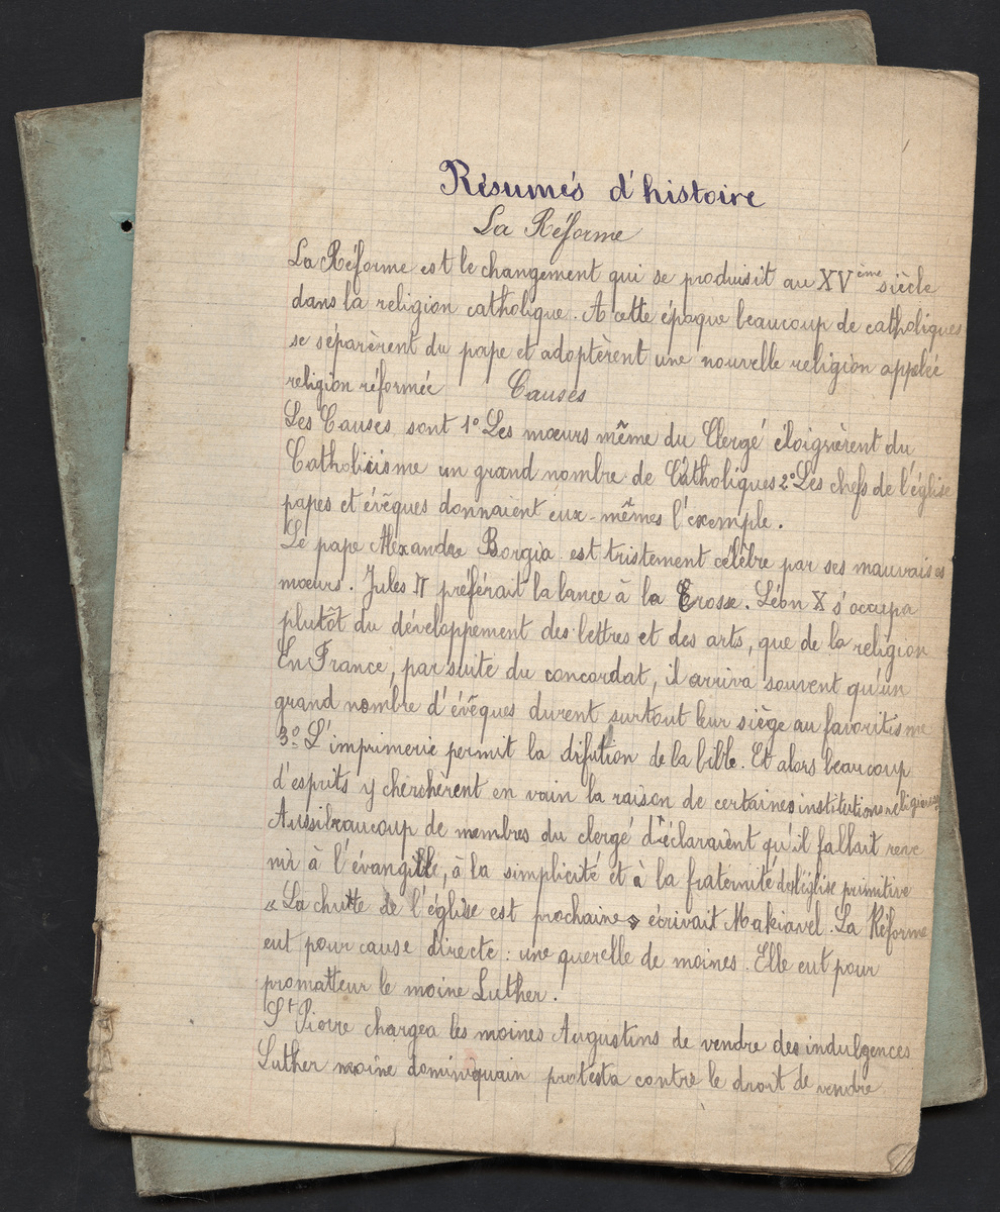 Résumés d'histoire
La Réforme
La Réforme est le changement qui se produisit au XVème siècle
dans la religion catholique. A cette époque beaucoup de catholiques
se séparèrent du pape et adoptèrent une nouvelle religion appelée
religion réformée Causes
Les Causes sont 1° Les mœurs même du Clergé éloignèrent du
Catholicisme un grand nombre de Catholiques 2° Les chefs de l'église
papes et évêques donnaient eux-mêmes l'exemple.
Le pape Alexandre Borgia est tristement célèbre par ses mauvaises
mœurs. Jules II préférait la lance à la Crosse. Léon X s'occupa
plutôt du développement des lettres et des arts, que de la religion
En France, par suite du concordat, il arriva souvent qu'un
grand nombre d'évêques durent surtout leur siège au favoritisme
3° L'imprimerie permit la difution de la bible. Et alors beaucoup
d'esprits y cherchèrent en vain la raison de certaines institutions religieuses
Aussi beaucoup de membres du clergé déclaraient qu'il fallait reve
nir à l'évangille, à la simplicité et à la fraternité de l'église primitive
« La chutte de l'église est prochaine » écrivait Makiavel. La Réforme
eut pour cause directe : une querelle de moines. Elle eut pour
promatteur le moine Luther.
St Pierre chargea les moines Augustins de vendre des indulgences
Luther moine dominiquain protesta contre le droit de vendre